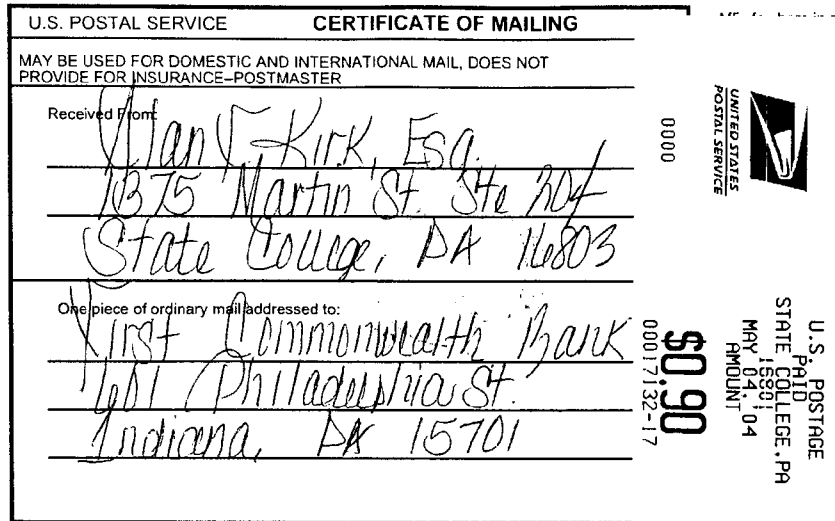 U.S. POSTAL SERVICE CERTIFICATE OF MAILING
MAY BE USED FOR DOMESTIC AND INTERNATIONAL MAIL, DOES NOT
PROVIDE FOR INSURANCE–POSTMASTER
Received From:
Kirk, Esq.
1375 Martin St. Ste 204
State College, PA 16803
One piece of ordinary mail addressed to:
First Commonwealth Bank
601 Philadelphia St.
Indiana, PA 15701
0000
UNITED STATES
POSTAL SERVICE
U.S. POSTAGE
PAID
STATE COLLEGE, PA
16801
MAY 04, '04
AMOUNT
$0.90
00017132-17